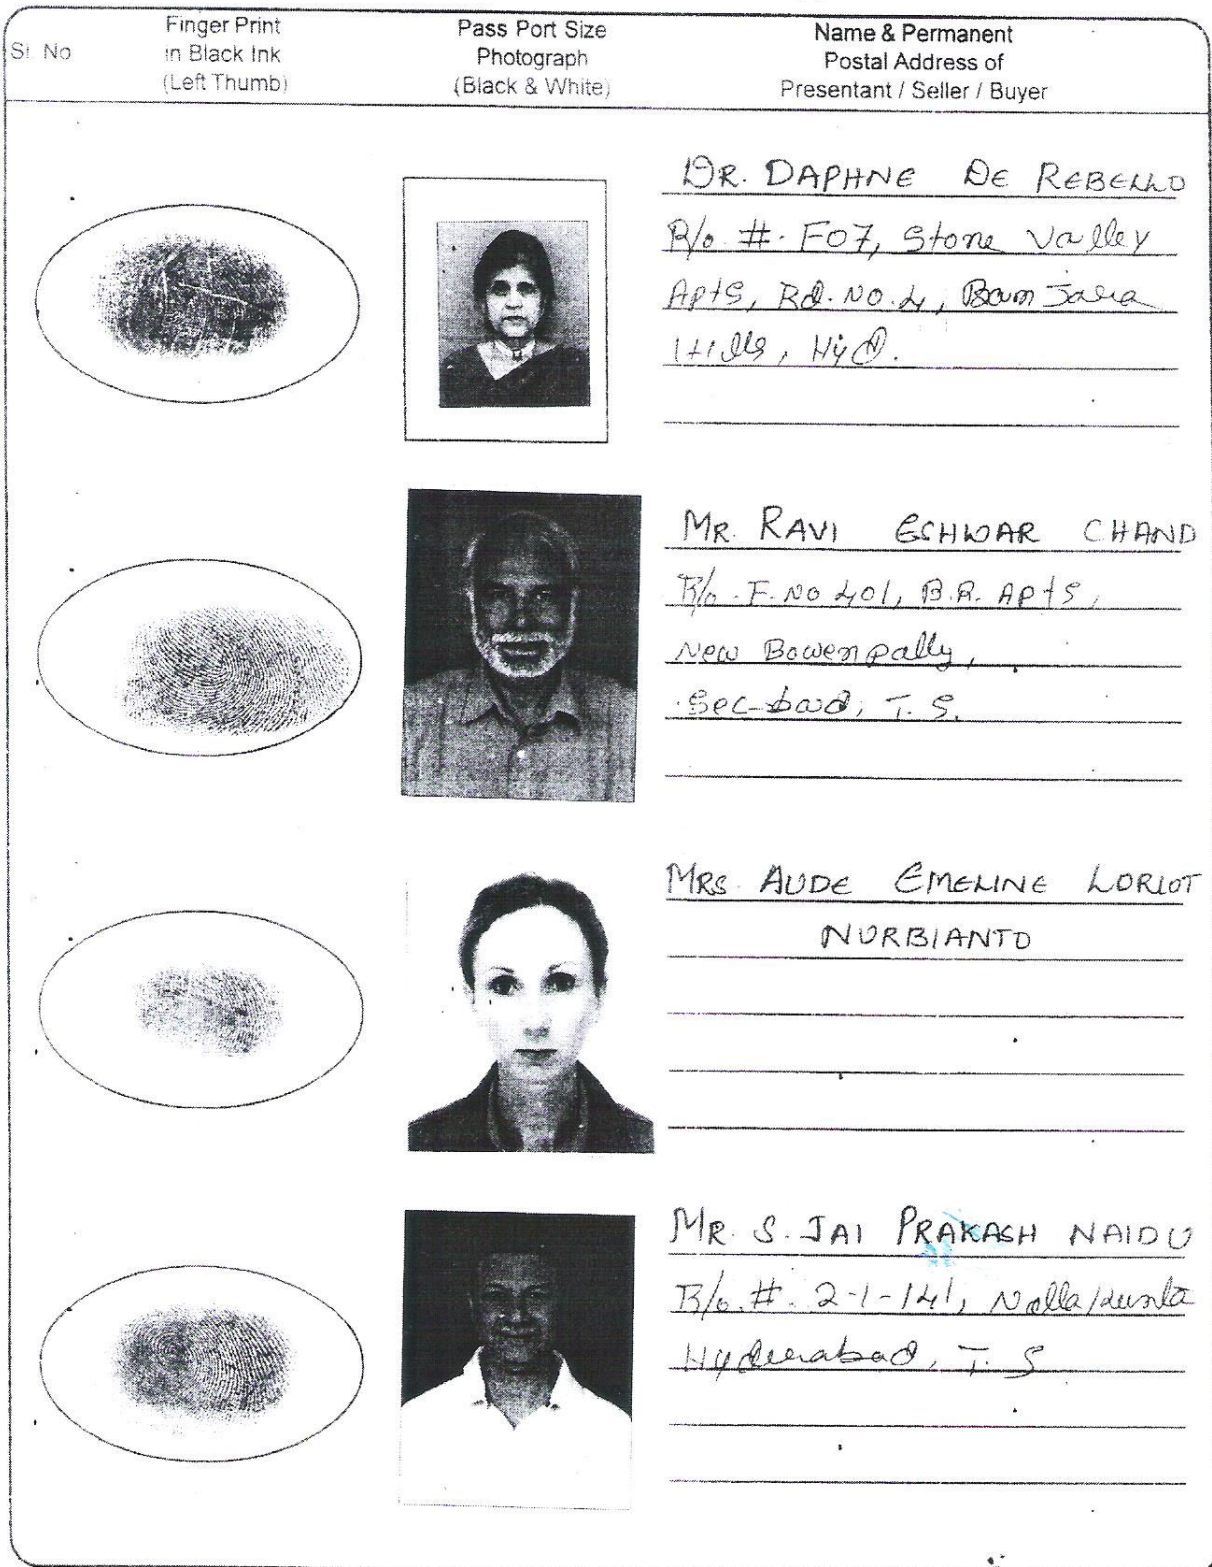 Sl. No
Finger Print
in Black Ink
(Left Thumb)
Pass Port Size
Photograph
(Black & White)
Name & Permanent
Postal Address of
Presentant / Seller / Buyer
DR. DAPHNE DE REBELLO
R/o. #. F07, Stone Valley
Apts, Rd. No. 4, Banjara
Hills, Hyd.
MR. RAVI ESHWAR CHAND
R/o. F. No 401, B.R. Apts,
New Bowenpally,
Sec-bad, T. S.
MRS. AUDE EMELINE LORIOT
NURBIANTO
MR. S. JAI PRAKASH NAIDU
R/o. #. 2-1-141, Nallakunta
Hyderabad, T. S